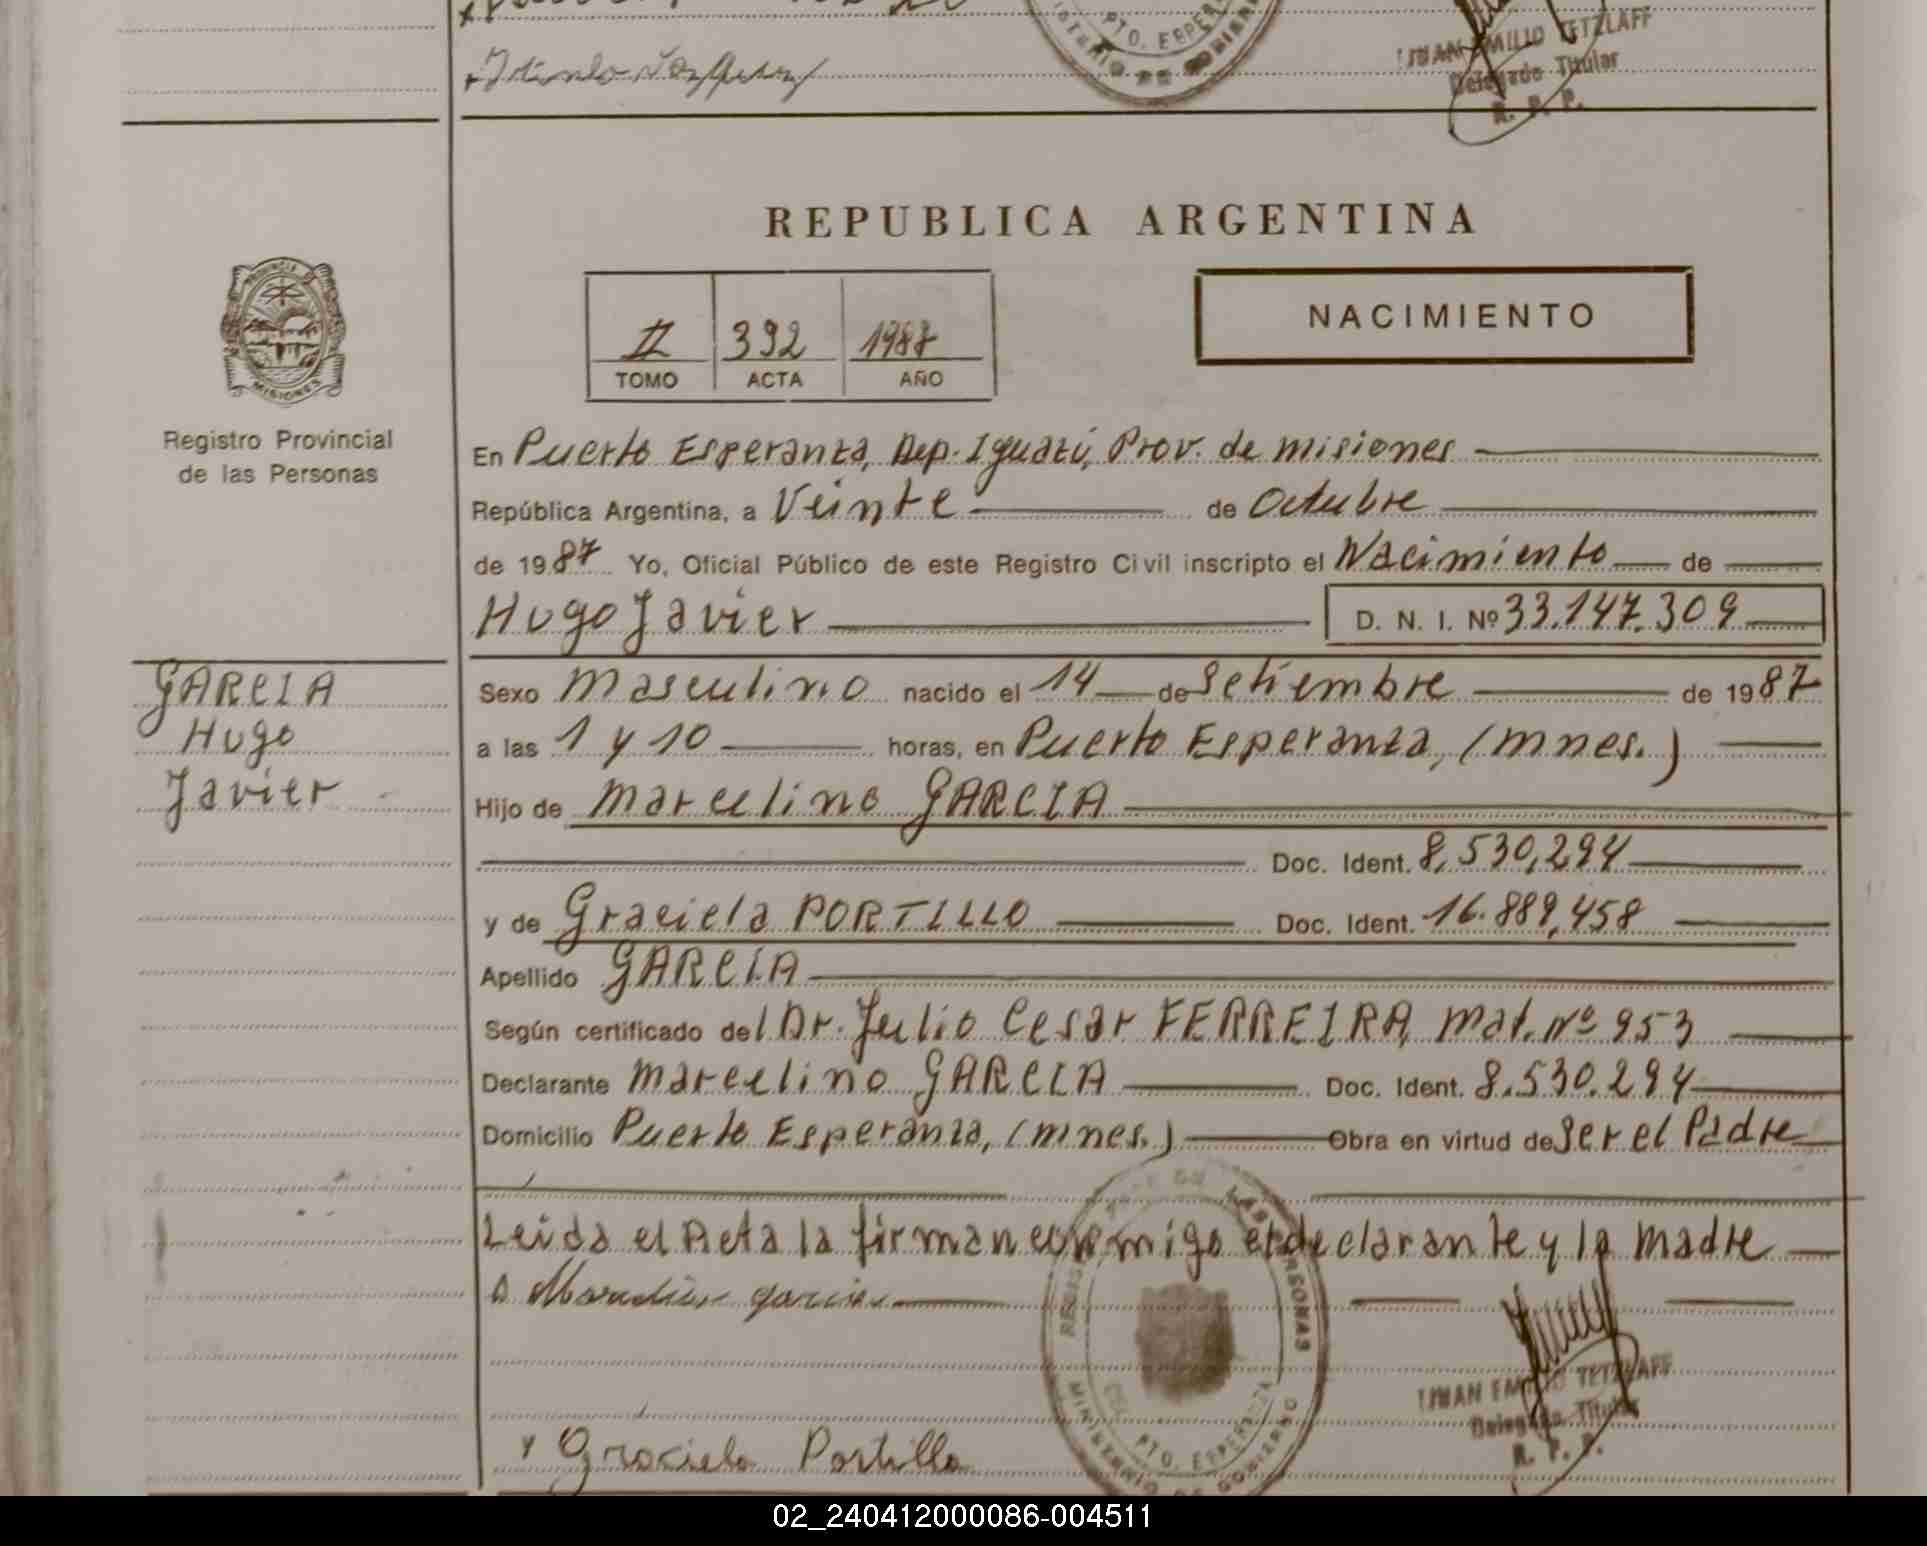 PTO. ESPER
MINISTERIO DE GOBIERNO
JUAN EMILIO TETZLAFF
Delegado Titular
R. P. P.
REPUBLICA ARGENTINA
PROVINCIA DE
MISIONES
II 392 1987
TOMO ACTA AÑO
NACIMIENTO
Registro Provincial
de las Personas
En Puerto Esperanza, Dep. Iguazú, Prov. de Misiones
República Argentina, a Veinte de Octubre
de 1987 Yo, Oficial Público de este Registro Civil inscripto el Nacimiento de
Hugo Javier D. N. I. Nº 33.147.309
GARCIA
Hugo
Javier
Sexo Masculino nacido el 14 de Setiembre de 1987
a las 1 y 10 horas, en Puerto Esperanza, (Mnes.)
Hijo de Marcelino GARCIA
Doc. Ident. 8,530,294
y de Graciela PORTILLO Doc. Ident. 16.889,458
Apellido GARCIA
Según certificado del Dr. Julio Cesar FERREIRA, Mat. Nº 953
Declarante Marcelino GARCIA Doc. Ident. 8.530.294
Domicilio Puerto Esperanza, (Mnes.) Obra en virtud de Ser el Padre
Leida el Acta la firman conmigo el declarante y la Madre
Marcelino Garcia
REGIST DE LAS PERSONAS
PTO. ESPERANZA
MINISTERIO DE GOBIERNO
JUAN EMILIO TETZLAFF
Delegado Titular
R. P. P.
y Graciela Portillo
02_240412000086-004511